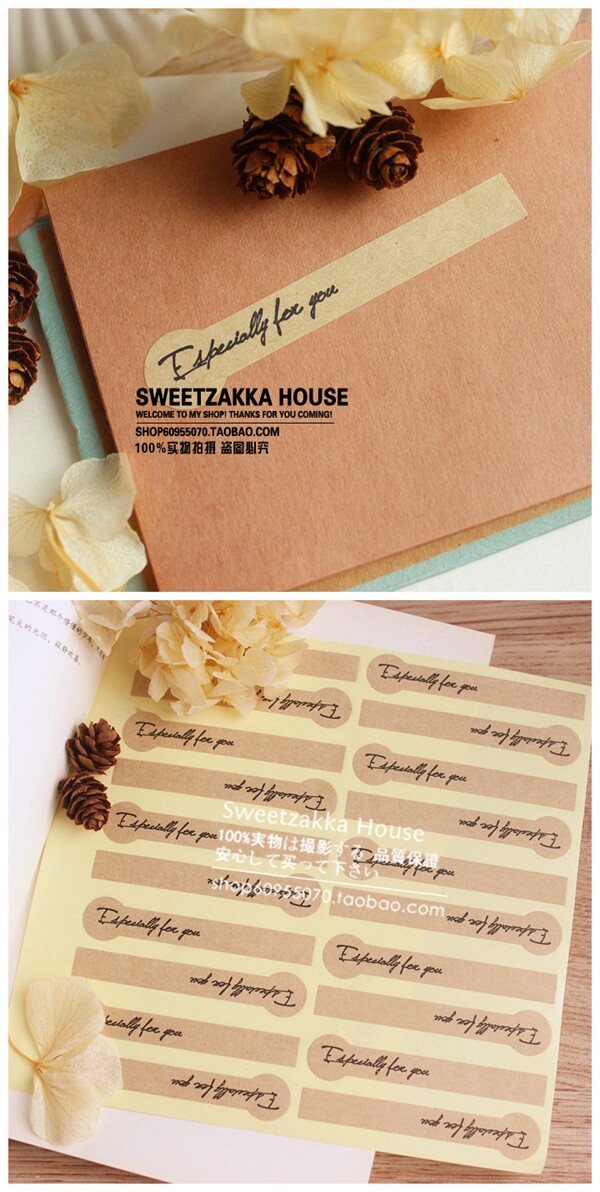 Especially for you
SWEETZAKKA HOUSE
WELCOME TO MY SHOP! THANKS FOR YOU COMING!
SHOP60955070.TAOBAO.COM
100%实物拍摄 盗图必究
Especially for you
Especially
Especially for you
Especially for you
Especially for you
Especially for you
Especially for you
Especially for you
Sweetzakka House
100%実物は撮影する 品質保證
安心して买って下さい
shop60955070.taobao.com
Especially for you
Especially for you
Especially for you
Especially for you
Especially for you
Especially for you
Especially for you
specially for you
Especially for you
Especially for you
Especially for you